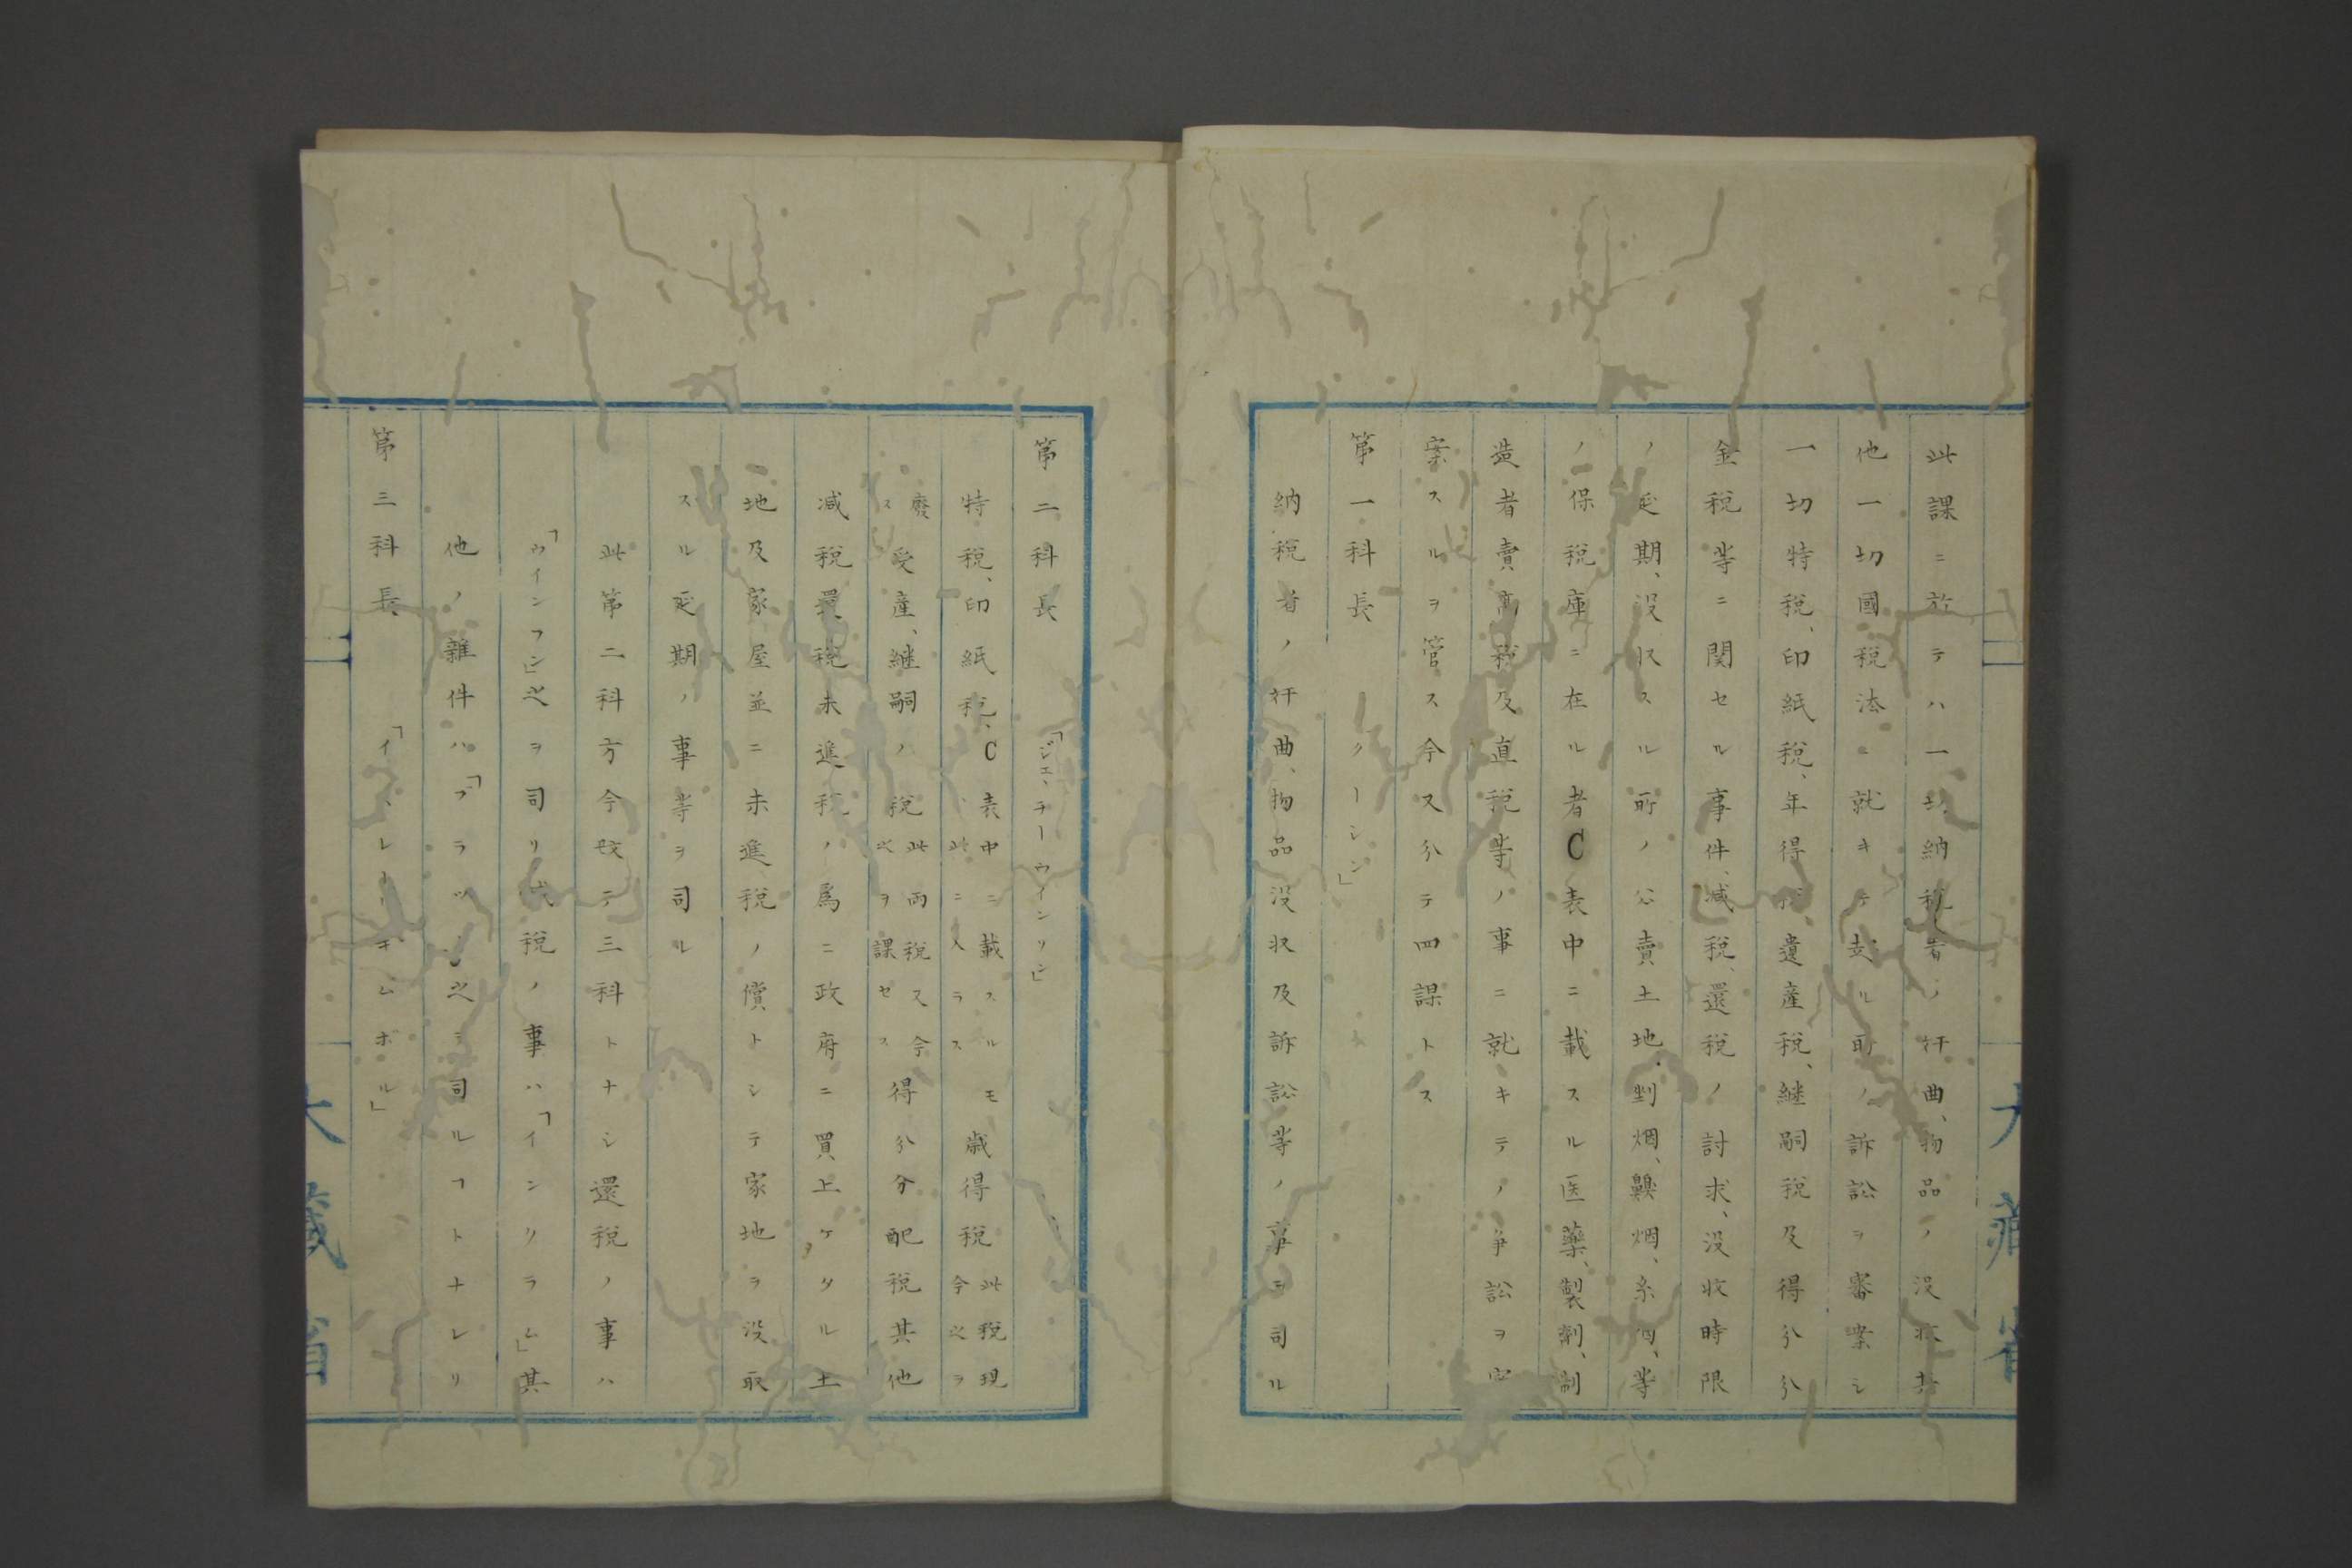 此課ニ於テハ一切納税者ノ奸曲、物品ノ没收其
他一切國税法ニ就キテ起ル所ノ訴訟ヲ審案シ
一切特税、印紙税、年得税、遺産税、継嗣税及得分分
金税等ニ関セル事件、減税、還税ノ討求、没收時限
ノ延期、没収スル所ノ公賣土地、剉烟、鼻烟、糸烟、等
ノ保税庫ニ在ル者C表中ニ載スル医藥、製劑、制
造者賣髙税及直税等ノ事ニ就キテノ争訟ヲ審
案スルヲ管ス今又分テ四課トス
第一科長 「ノーシン」
納税者ノ奸曲、物品没収及訴訟等ノ事ヲ司ル
大藏省
第二科長 「ジェ、チーウインリン」
特税、印紙税、C表中ニ載スルモ此ニ入ラス歳得税此税現今之ヲ
廢ス受産、継嗣ノ税此両税又今之ヲ課セス得分分配税其他
减税還税未進税ノ爲ニ政府ニ買上ケタル土
地及家屋並ニ未進税ノ償トシテ家地ヲ没取
スル延期ノ事等ヲ司ル
此第二科方今改テ三科トナシ還税ノ事ハ
「ウインフン」之ヲ司リ税ノ事ハ「インクラム」其
他ノ雜件ハ「プラツ」之ヲ司ルヿトナレリ
第三科長 「イ、レーキムボル」
大藏省